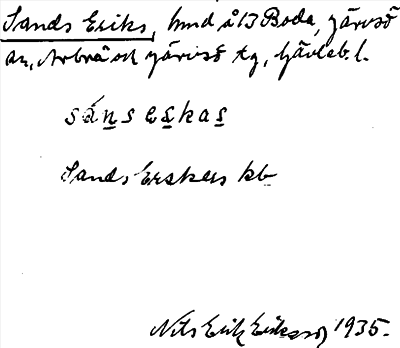 Sands Eriks, hmd å 13 Boda, Järvsö
sn, Arbrå och Järvsö tg, Gävleb. l.
sánseskas
Sands Erskers kb
Nils Erik Eriksson 1935.